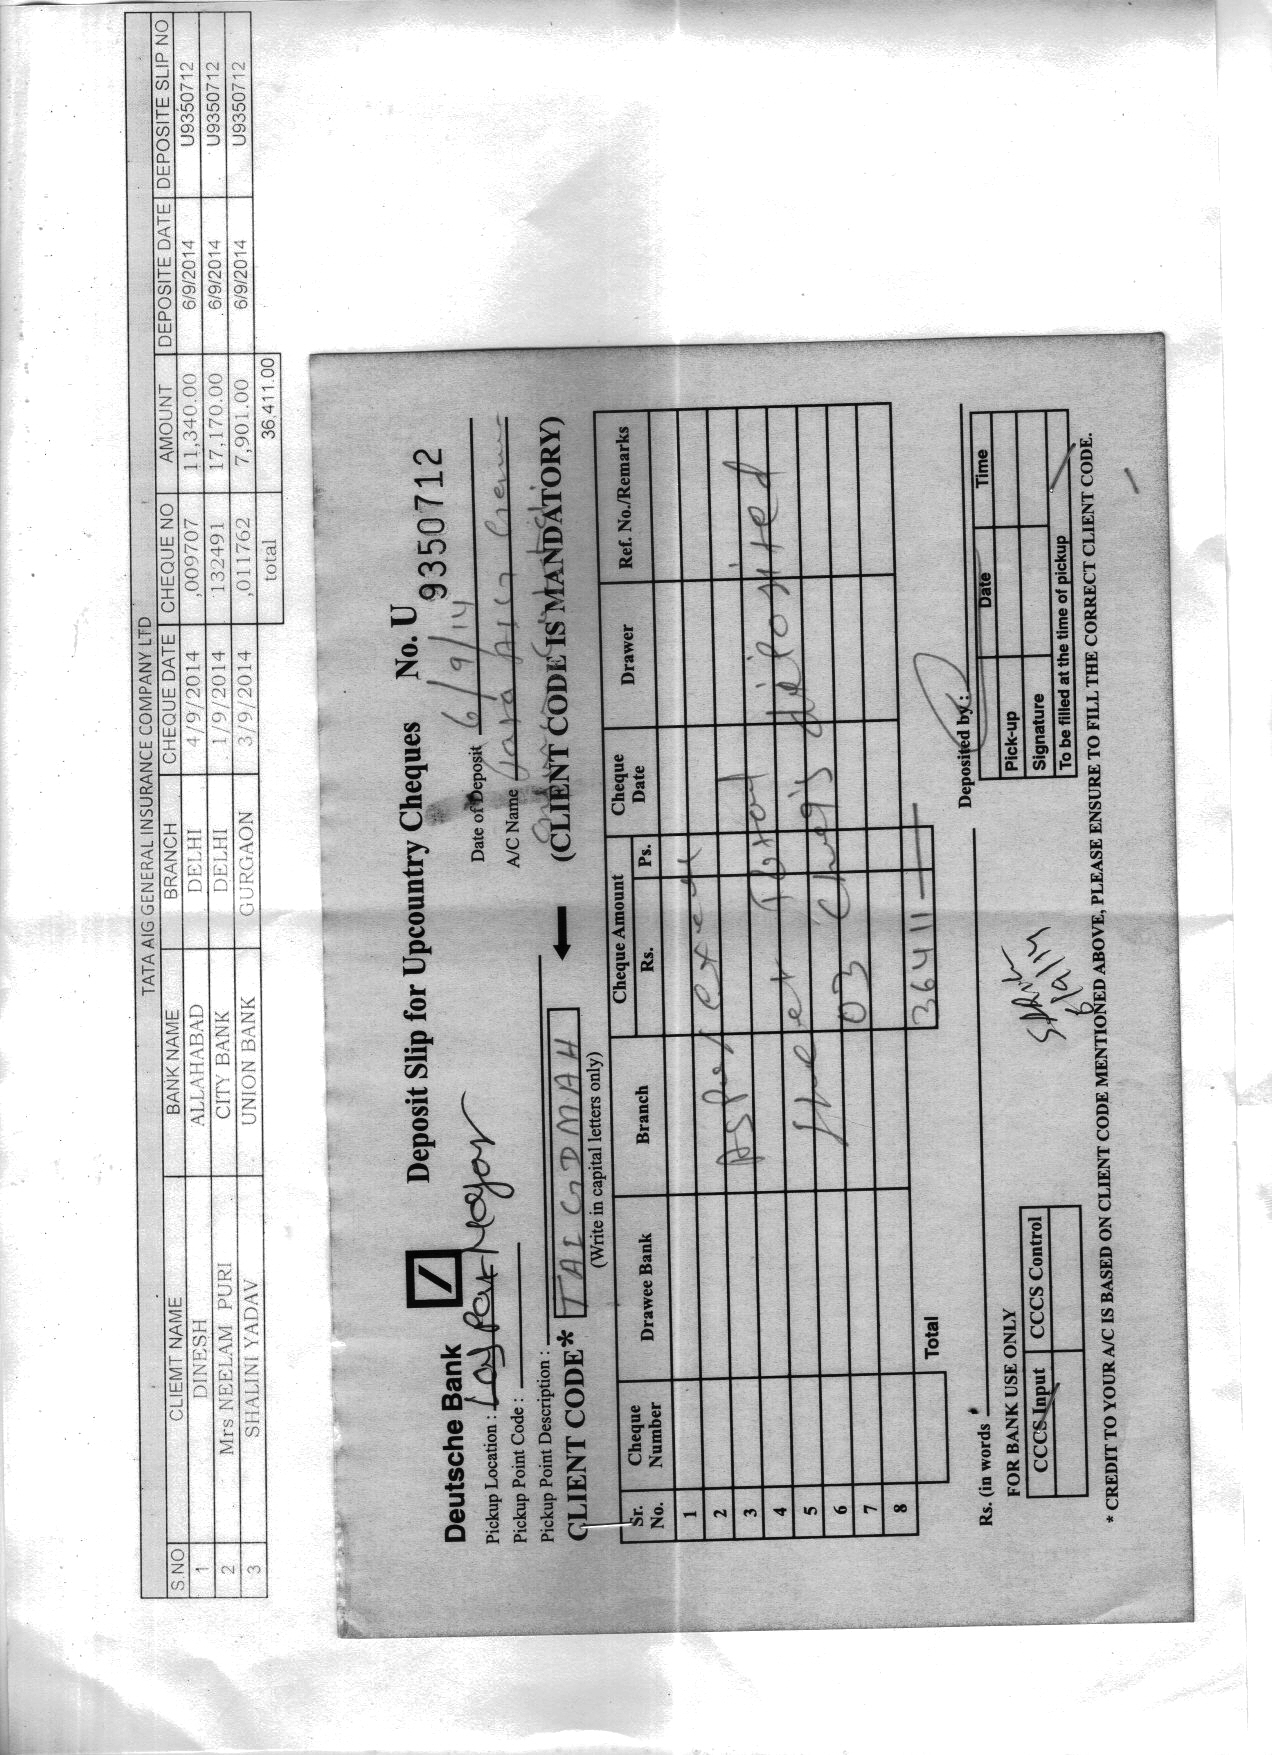 TATA AIG GENERAL INSURANCE COMPANY LTD
S.NO CLIEMT NAME BANK NAME BRANCH CHEQUE DATE CHEQUE NO AMOUNT DEPOSITE DATE DEPOSITE SLIP NO
1 DINESH ALLAHABAD DELHI 4/9/2014 ,009707 11,340.00 6/9/2014 U9350712
2 Mrs NEELAM PURI CITY BANK DELHI 1/9/2014 132491 17,170.00 6/9/2014 U9350712
3 SHALINI YADAV UNION BANK GURGAON 3/9/2014 ,011762 7,901.00 6/9/2014 U9350712
total 36,411.00
Deutsche Bank Deposit Slip for Upcountry Cheques No. U 9350712
Pickup Location : Lajpat Nagar Date of Deposit 6/9/14
Pickup Point Code : A/C Name Tata AIG General
Pickup Point Description :
CLIENT CODE* TALGDMAH (CLIENT CODE IS MANDATORY)
(Write in capital letters only)
Sr. No. Cheque Number Drawee Bank Branch Cheque Amount Rs. Ps. Cheque Date Drawer Ref. No./Remarks
1
2 As per excel
3
4 sheet Total
5
6 03 Chq's deposited
7
8
Total 36411
Rs. (in words Deposited by :
FOR BANK USE ONLY
CCCS Input CCCS Control
Date Time
Pick-up
Signature
To be filled at the time of pickup
6/9/14
* CREDIT TO YOUR A/C IS BASED ON CLIENT CODE MENTIONED ABOVE, PLEASE ENSURE TO FILL THE CORRECT CLIENT CODE.